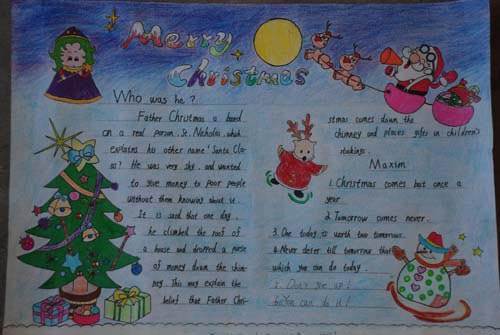 Merry
Christmas
Who was he?
Father Christmas a band
on a real person, St. Nicholas, which
explains his other name 'Santa Cla-
us? He was very shy, and wanted
to give money to poor people
without them knowing about it.
It is said that one day,
he climbed the roof of
a house and dropped a purse
of money down the chim-
ney. This may explain the
belief that Father Chri-
stmas comes down the
chimney and places gifts in children's
stokings.
Maxim
1. Christmas comes but once a
year
2. Tomorrow comes never.
3. One today is worth two tomorrow.
4. Never deter till tomorrow that
which you can do today.
5. give up!
6. You can do it!